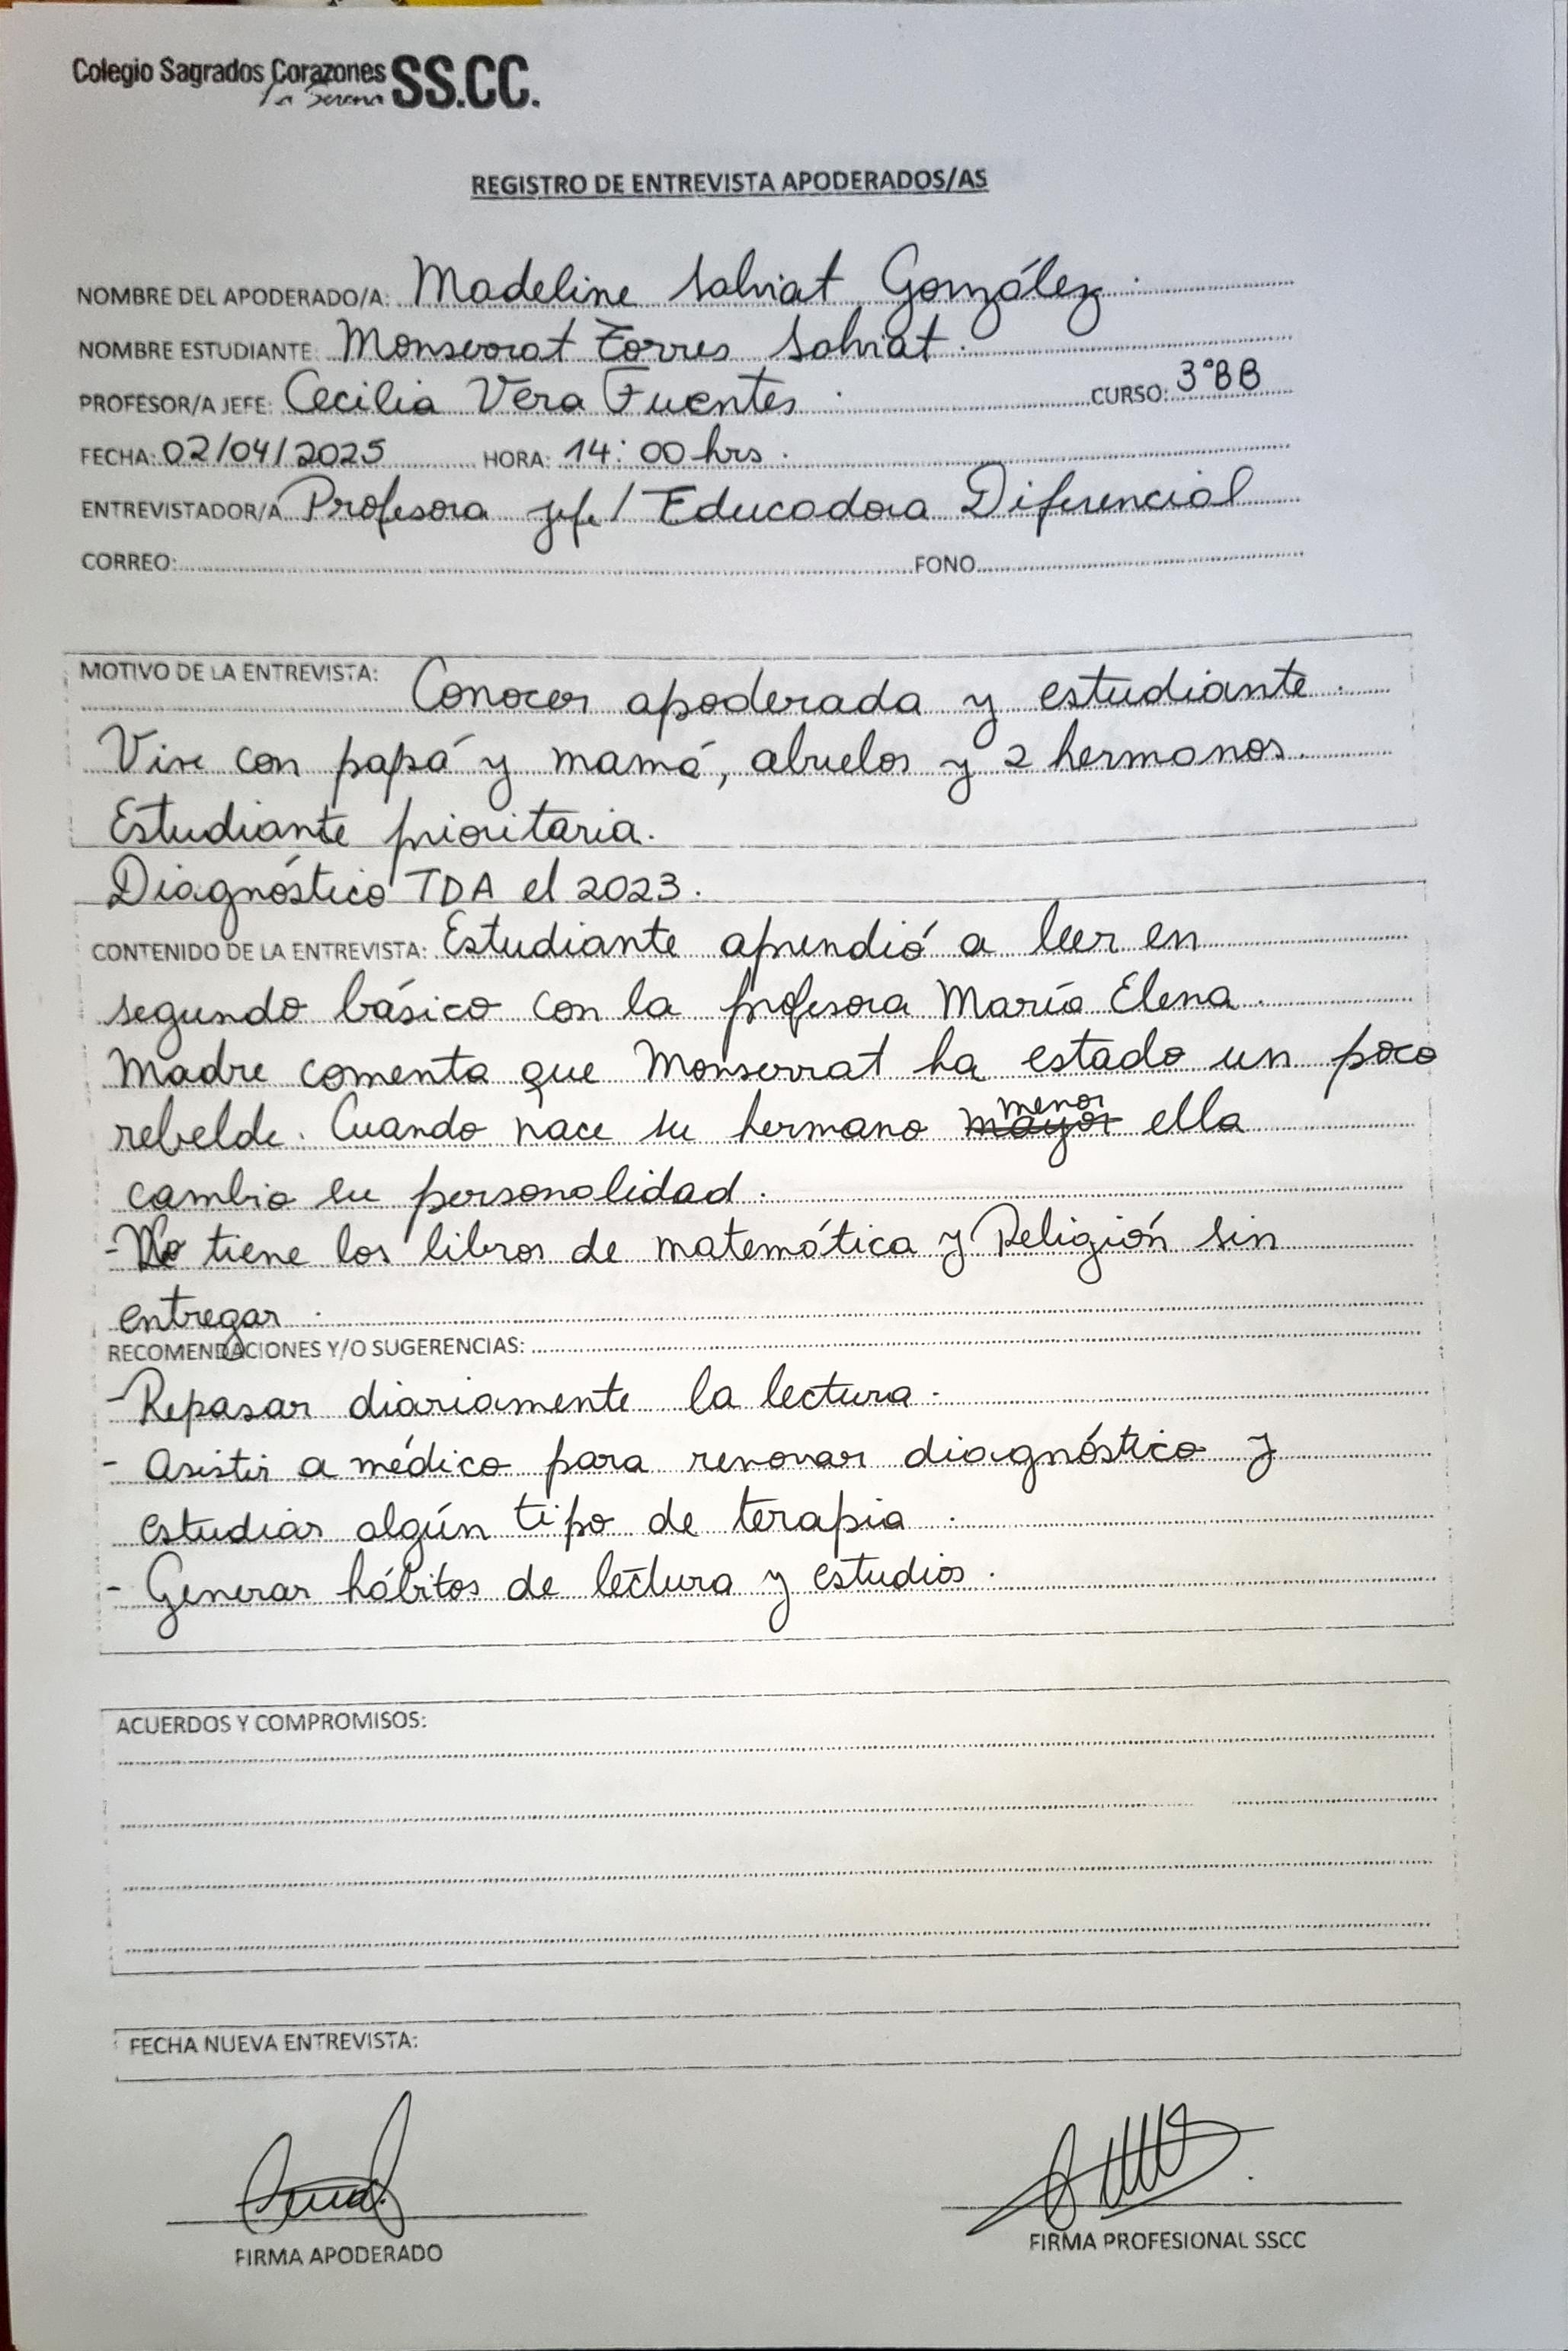 Colegio Sagrados Corazones SS.CC.
La Serena
REGISTRO DE ENTREVISTA APODERADOS/AS
NOMBRE DEL APODERADO/A: Madeline Salviat González
NOMBRE ESTUDIANTE: Monserrat Torres Salviat
PROFESOR/A JEFE: Cecilia Vera Fuentes CURSO: 3°BB
FECHA: 02/04/2025 HORA: 14:00 hrs.
ENTREVISTADOR/A Profesora jefe / Educadora Diferencial
CORREO: FONO
MOTIVO DE LA ENTREVISTA: Conocer apoderada y estudiante.
Vive con papá y mamá, abuelos y 2 hermanos.
Estudiante prioritaria.
Diagnóstico TDA el 2023.
CONTENIDO DE LA ENTREVISTA: Estudiante aprendió a leer en
segundo básico con la profesora María Elena.
Madre comenta que Monserrat ha estado un poco
rebelde. Cuando nace su hermano mayor menor ella
cambio su personalidad.
- No tiene los libros de matemática y Religión sin
entregar.
RECOMENDACIONES Y/O SUGERENCIAS:
- Repasar diariamente la lectura.
- Asistir a médico para renovar diagnóstico y
estudiar algún tipo de terapia.
- Generar hábitos de lectura y estudios.
ACUERDOS Y COMPROMISOS:
FECHA NUEVA ENTREVISTA:
FIRMA APODERADO FIRMA PROFESIONAL SSCC